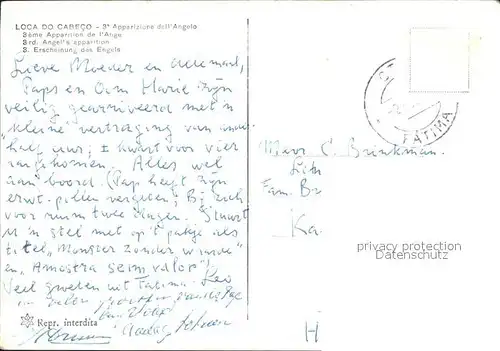 LOCA DO CABEÇO - 3ª Apparizione dell'Angelo
3ème Apparition de l'Ange
3rd. Angel's apparition
3. Erscheinung des Engels
Lieve Moeder en allemaal,
Paps en Oom Marie zijn
veilig gearriveerd met 'n
"kleine" vertraging van
half uur; 1 kwart voor vier
aangekomen. Alles wel
aan boord. (Pap heeft zijn
pillen vergeten; Bij zich
voor ruim twee dagen. Stuurt
U 'n stel met op 't pakje als
titel "Monster zonder waarde"
en "Amostra sem valor".)
Veel groeten uit Fatima.
Repr. interdita
FÁTIMA
Mevr C. Brinkman.
Fam. B
Ka
privacy protection
by oldthing.de
H